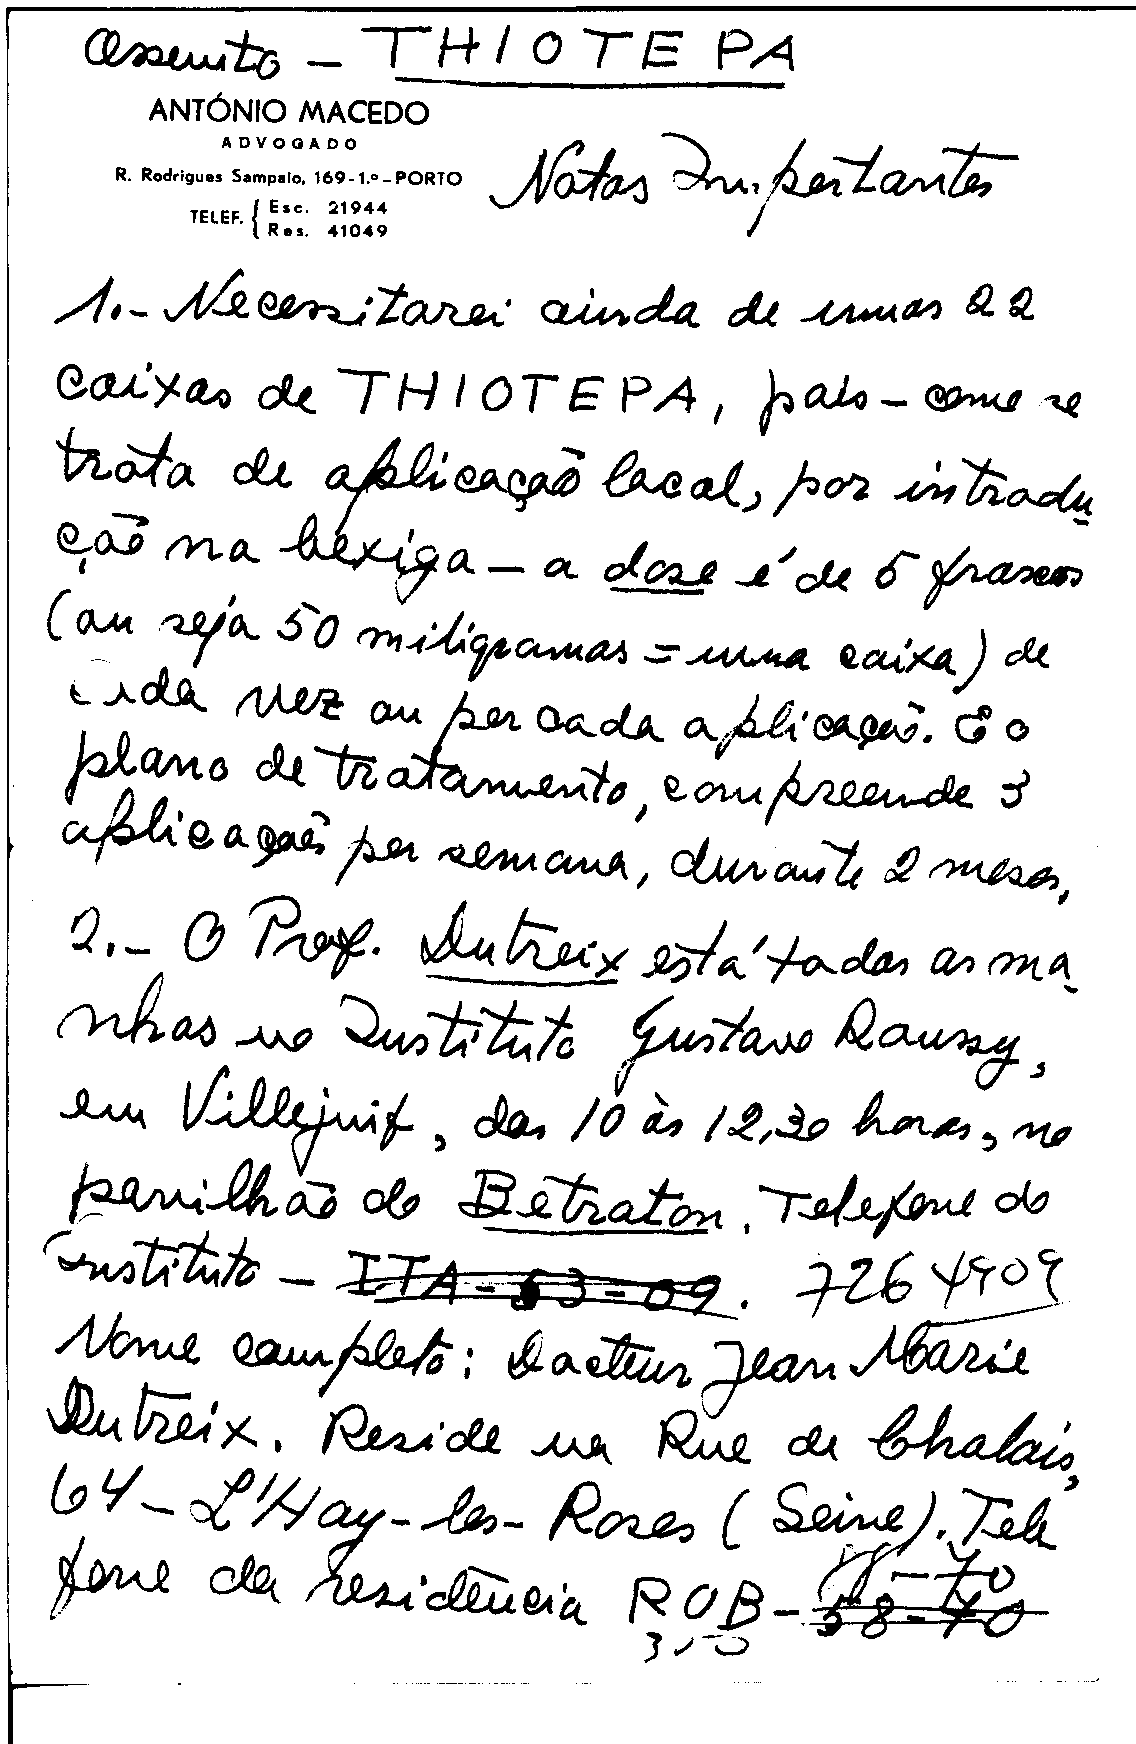 Assunto - THIOTEPA
ANTÓNIO MACEDO
ADVOGADO
R. Rodrigues Sampaio, 169-1.º-PORTO
TELEF. { Esc. 21944
Res. 41049
Notas Importantes
1.- Necessitarei ainda de umas 22
caixas de THIOTEPA, pois - como se
trata de aplicação local, por introdu-
ção na bexiga - a dose é de 5 frascos
(ou seja 50 miligramas = uma caixa) de
cada vez ou por cada aplicação. E o
plano de tratamento, compreende 3
aplicações por semana, durante 2 meses.
2.- O Prof. Dutreix está todas as ma-
nhas no Instituto Gustave Roussy,
em Villejuif, das 10 às 12,30 horas, no
pavilhão do Betraton. Telefone do
Instituto - ITA-53-09. 7264909
Nome completo: Docteur Jean Marie
Dutreix. Reside na Rue de Chalais,
64 - L'Hay-les-Roses (Seine). Tele
fone da residência ROB - 58-70
-70